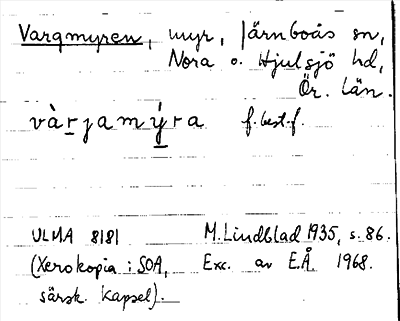 Vargmyren, myr, Järnboås sn,
Nora o. Hjulsjö hd,
Ör. län.
và̱rjamý̱ra f. best. f.
ULMA 8181 M. Lindblad 1935, s. 86.
(Xerokopia i SOA, Exc. av E.Å. 1968.
särsk. kapsel).